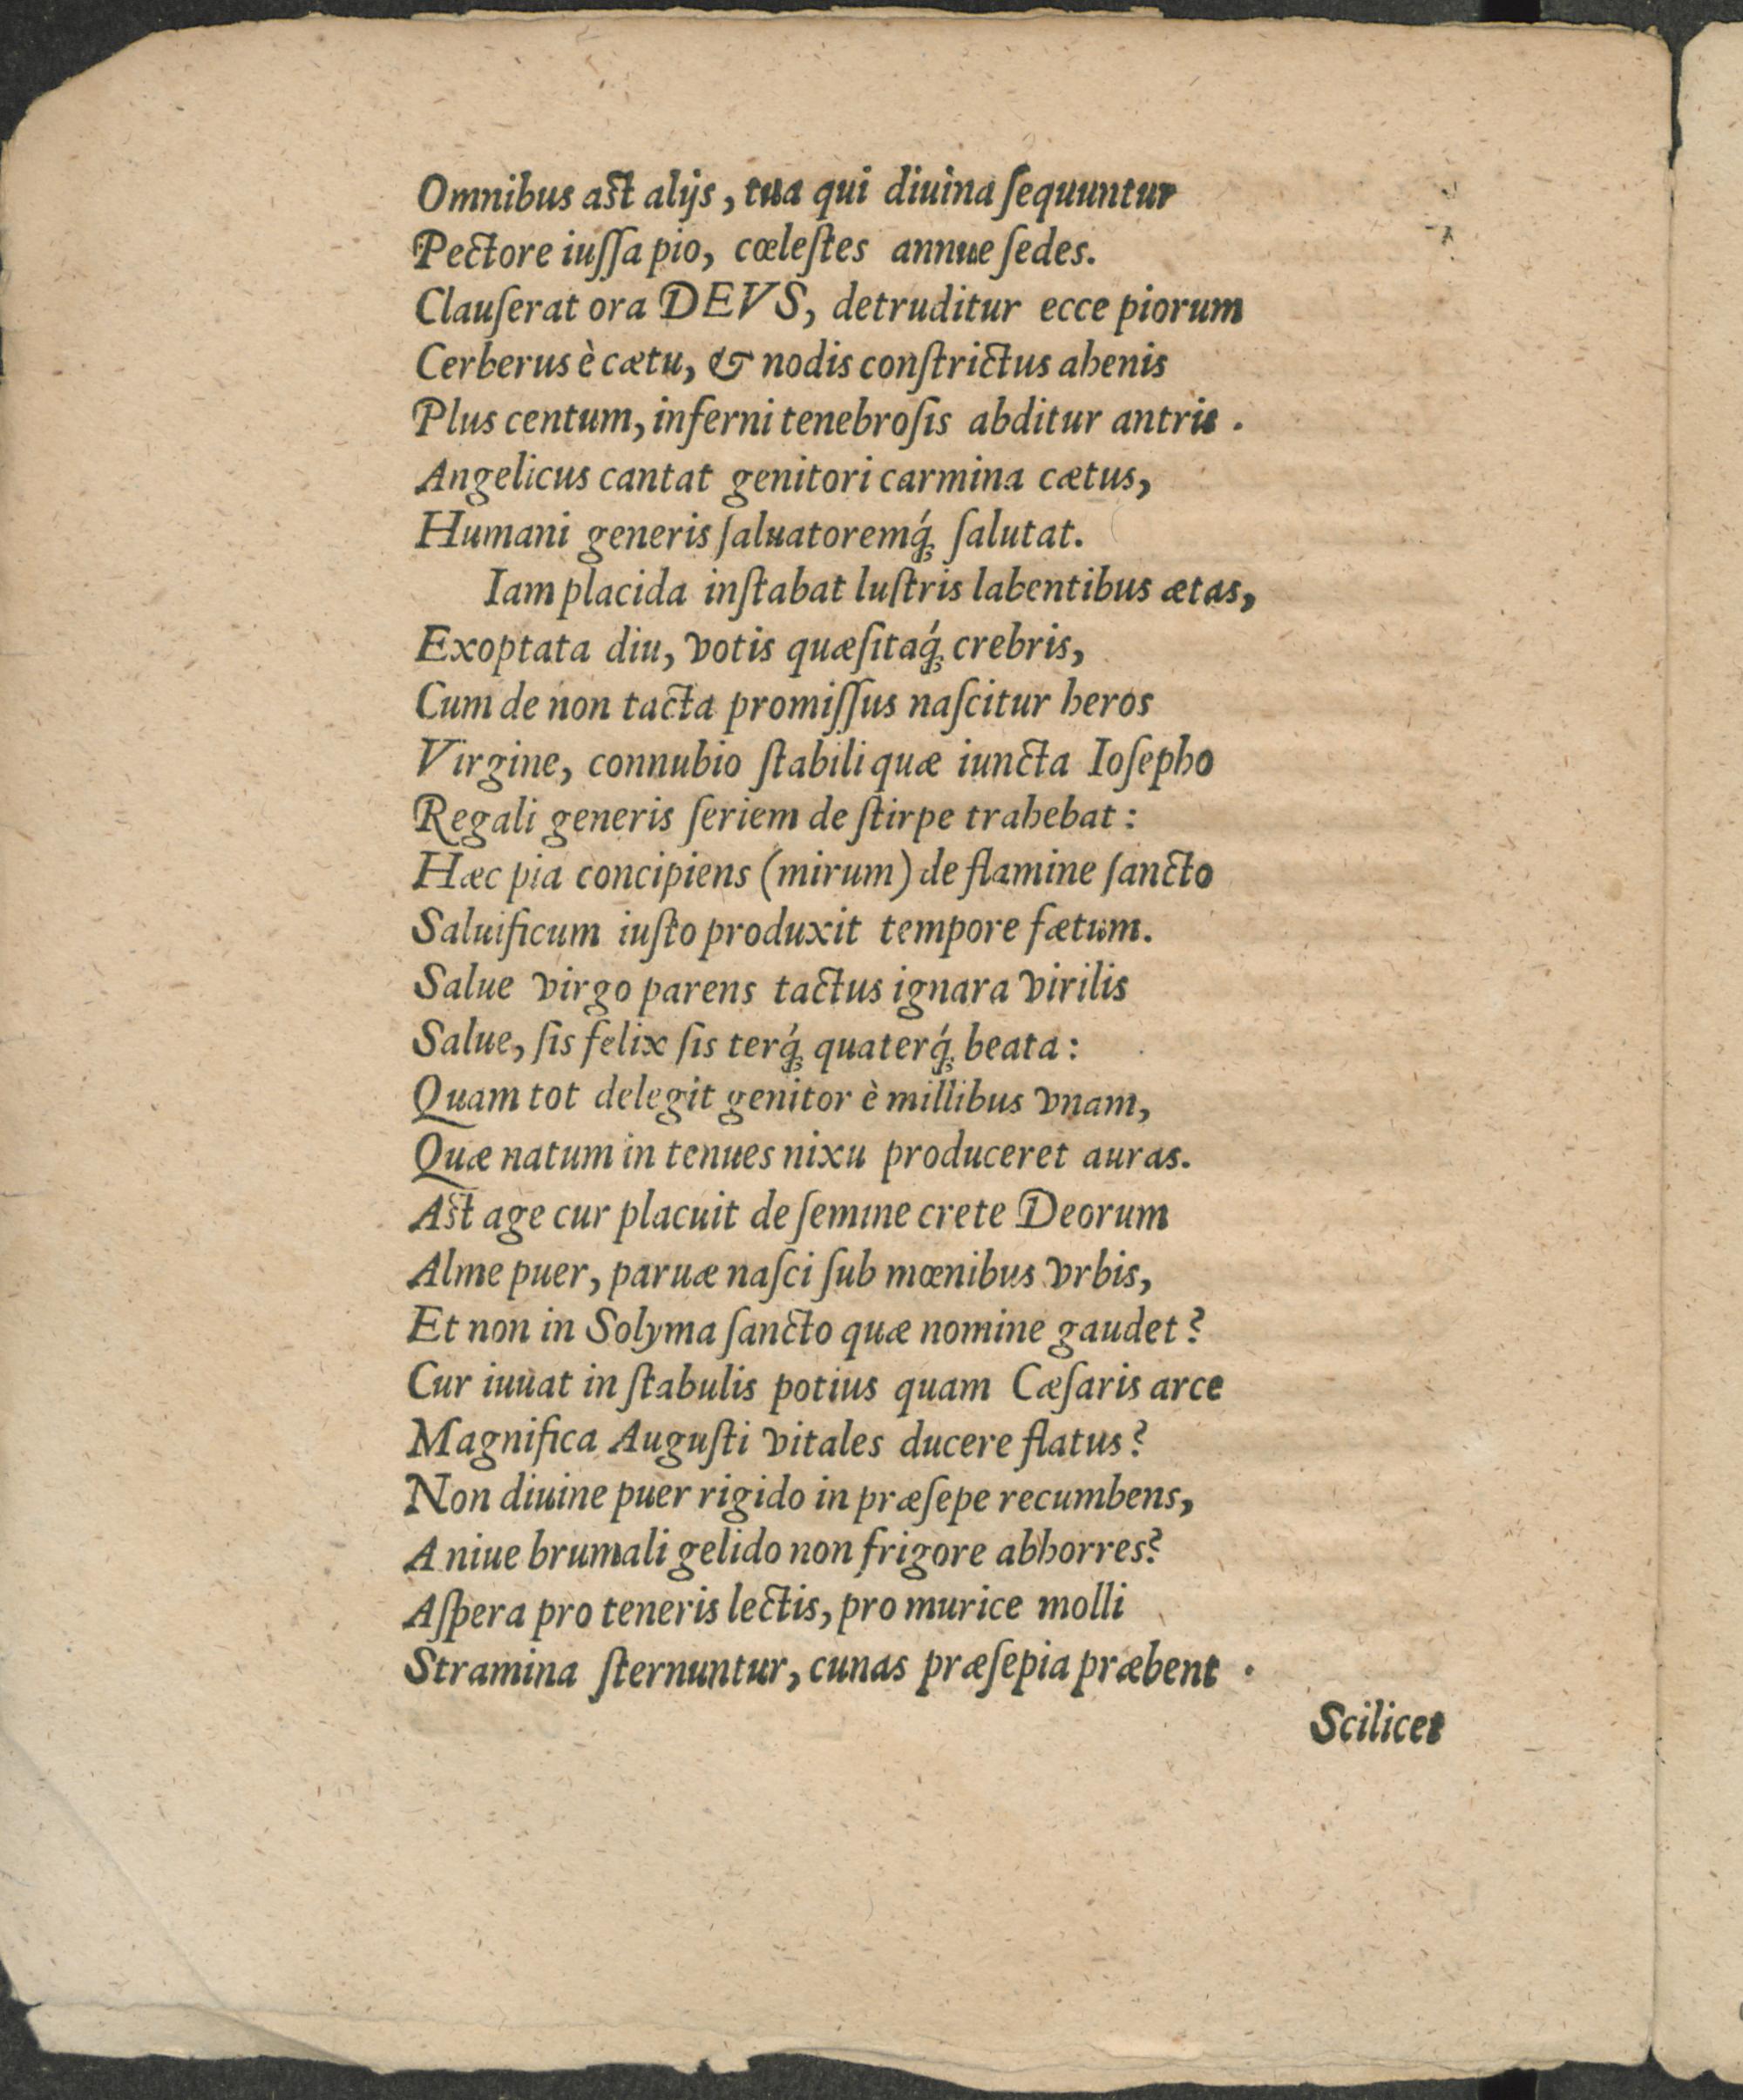 Omnibus ast alijs, tua qui diuina ſequuntur
Pectore iuſſa pio, cœleſtes annue ſedes.
Clauſerat ora DEVS, detruditur ecce piorum
Cerberus è cætu, & nodis conſtrictus ahenis
Plus centum, inferni tenebroſis abditur antris.
Angelicus cantat genitori carmina cætus,
Humani generis ſaluatoremq́; ſalutat.
Iam placida inſtabat luſtris labentibus ætas,
Exoptata diu, votis quæſitaq́; crebris,
Cum de non tacta promiſſus naſcitur heros
Virgine, connubio ſtabili quæ iuncta Ioſepho
Regali generis ſeriem de ſtirpe trahebat:
Hæc pia concipiens (mirum) de flamine ſancto
Saluificum iuſto produxit tempore fætum.
Salue virgo parens tactus ignara virilis
Salue, ſis felix ſis terq́; quaterq́; beata:
Quam tot delegit genitor è millibus vnam,
Quæ natum in tenues nixu produceret auras.
Ast age cur placuit de ſemine crete Deorum
Alme puer, paruæ naſci ſub mœnibus vrbis,
Et non in Solyma ſancto quæ nomine gaudet?
Cur iuuat in ſtabulis potius quam Cæſaris arce
Magnifica Auguſti vitales ducere flatus?
Non diuine puer rigido in præſepe recumbens,
A niue brumali gelido non frigore abhorres?
Aſpera pro teneris lectis, pro murice molli
Stramina ſternuntur, cunas præſepia præbent.
Scilicet